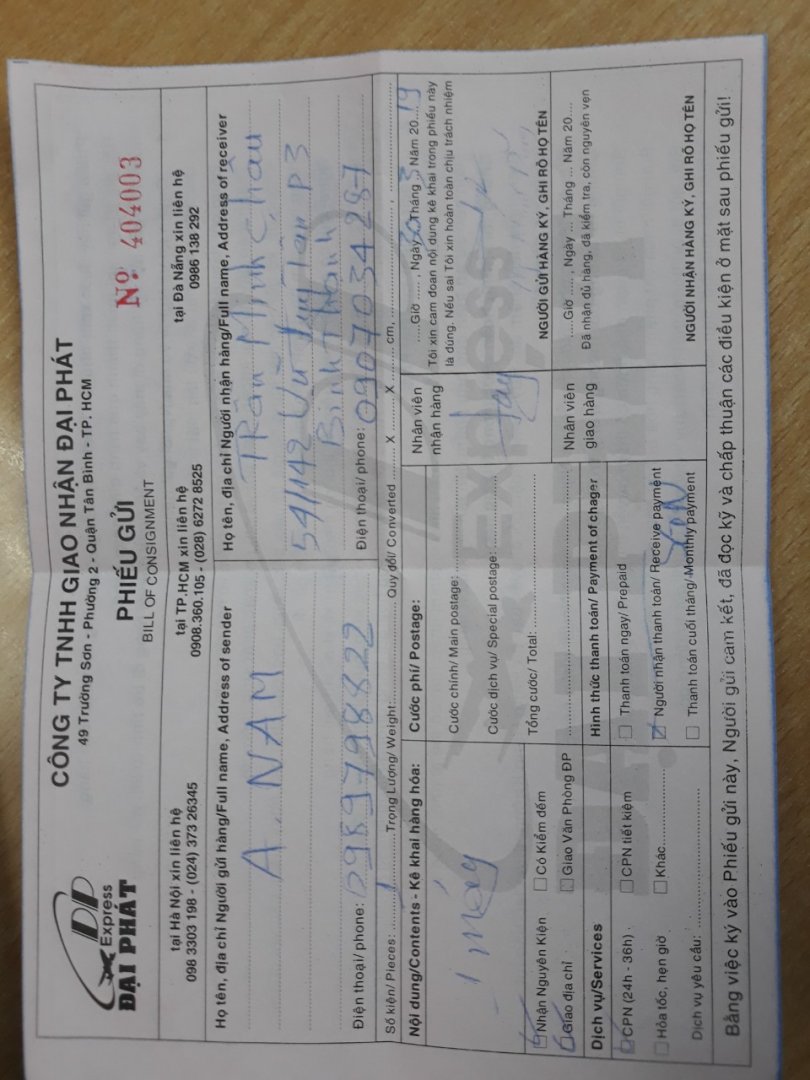 ĐP
Express
ĐẠI PHÁT
CÔNG TY TNHH GIAO NHẬN ĐẠI PHÁT
49 Trường Sơn - Phường 2 - Quận Tân Bình - TP. HCM
PHIẾU GỬI
BILL OF CONSIGNMENT
Nº 404003
tại Hà Nội xin liên hệ
098 3303 198 - (024) 373 26345
tại TP.HCM xin liên hệ
0908.360.105 - (028) 6272 8525
tại Đà Nẵng xin liên hệ
0986 138 292
Họ tên, địa chỉ Người gửi hàng/Full name, Address of sender
A. NAM
Điện thoại/ phone: 0989798822
Họ tên, địa chỉ Người nhận hàng/Full name, Address of receiver
Trần Minh Châu
54/142 Vũ Huy Tấn P3
Bình Thạnh
Điện thoại/ phone: 0907034287
Số kiện/ Pieces: 1 Trọng Lượng/ Weight: Quy đổi/ Converted X X cm,
Nội dung/Contents - Kê khai hàng hóa:
1 máy
Nhận Nguyên Kiện
Có Kiểm đếm
Giao địa chỉ
Giao Văn Phòng ĐP
Dịch vụ/Services
CPN (24h - 36h)
CPN tiết kiệm
Hỏa tốc, hẹn giờ
Khác
Dịch vụ yêu cầu:
Cước phí/ Postage:
Cước chính/ Main postage:
Cước dịch vụ/ Special postage:
Tổng cước/ Total:
Hình thức thanh toán/ Payment of chager
Thanh toán ngay/ Prepaid
Người nhận thanh toán/ Receive payment
Thanh toán cuối tháng/ Monthly payment
Nhân viên
nhận hàng
Nhân viên
giao hàng
Giờ , Ngày Tháng 3 Năm 2019
Tôi xin cam đoan nội dung kê khai trong phiếu này
là đúng. Nếu sai Tôi xin hoàn toàn chịu trách nhiệm
NGƯỜI GỬI HÀNG KÝ, GHI RÕ HỌ TÊN
Giờ , Ngày ... Tháng ... Năm 20
Đã nhận đủ hàng, đã kiểm tra, còn nguyên vẹn
NGƯỜI NHẬN HÀNG KÝ, GHI RÕ HỌ TÊN
Bằng việc ký vào Phiếu gửi này, Người gửi cam kết, đã đọc kỹ và chấp thuận các điều kiện ở mặt sau phiếu gửi!